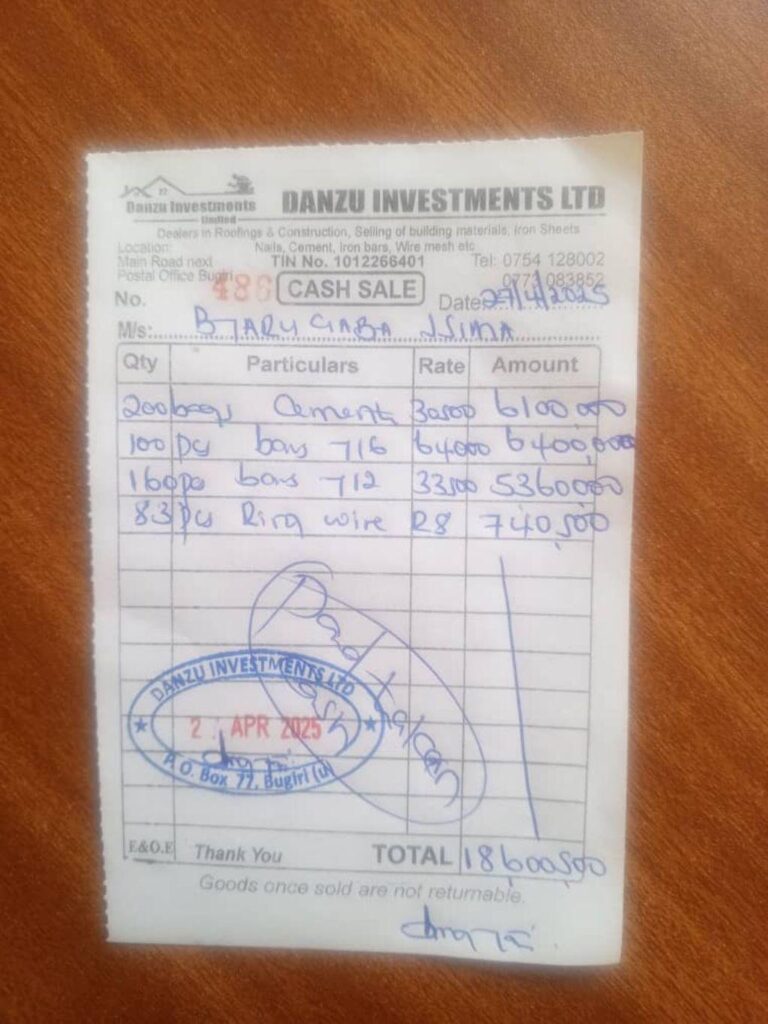 Danzu Investments Limited
DANZU INVESTMENTS LTD
Dealers in Roofings & Construction, Selling of building materials, Iron Sheets
Nails, Cement, Iron bars, Wire mesh etc
Location:
Main Road next
Postal Office Bugiri
TIN No. 1012266401
Tel: 0754 128002
0773 083852
No. 486
CASH SALE
Date 27/4/2025
M/s:
Qty Particulars Rate Amount
200 bags Cement 30500 6100,000
100 pcs bars T16 64000 6400,000
160 pcs bars T12 33500 5360000
83 pcs Ring wire R8 740,500
Cash
DANZU INVESTMENTS LTD
APR 2025
P. O. Box 77, Bugiri (U)
E&O.E Thank You TOTAL 18,600,500
Goods once sold are not returnable.